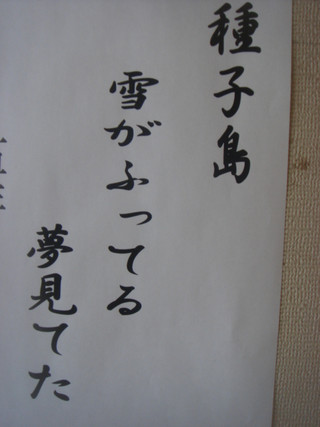 種子島
雪がふってる
夢見てた